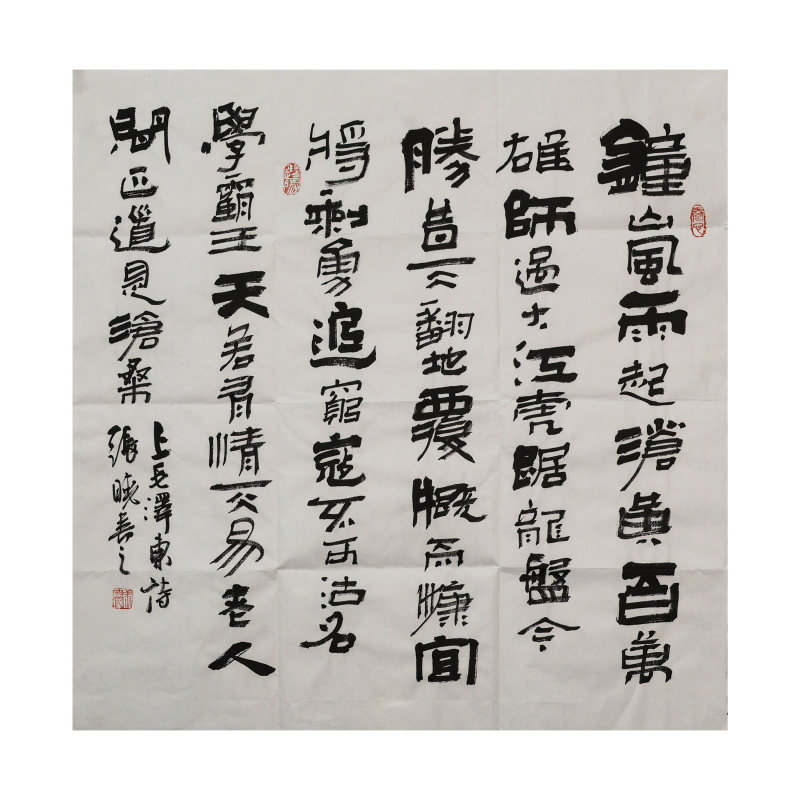 鐘山風雨起滄黃百萬
雄師過大江虎踞龍盤今
勝昔天翻地覆慨而慷宜
將剩勇追窮寇不可沽名
學霸王天若有情天亦老人
間正道是滄桑
上毛澤東詩
張曉